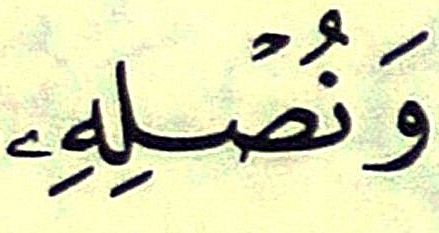 وَنُصْلِهِۦ